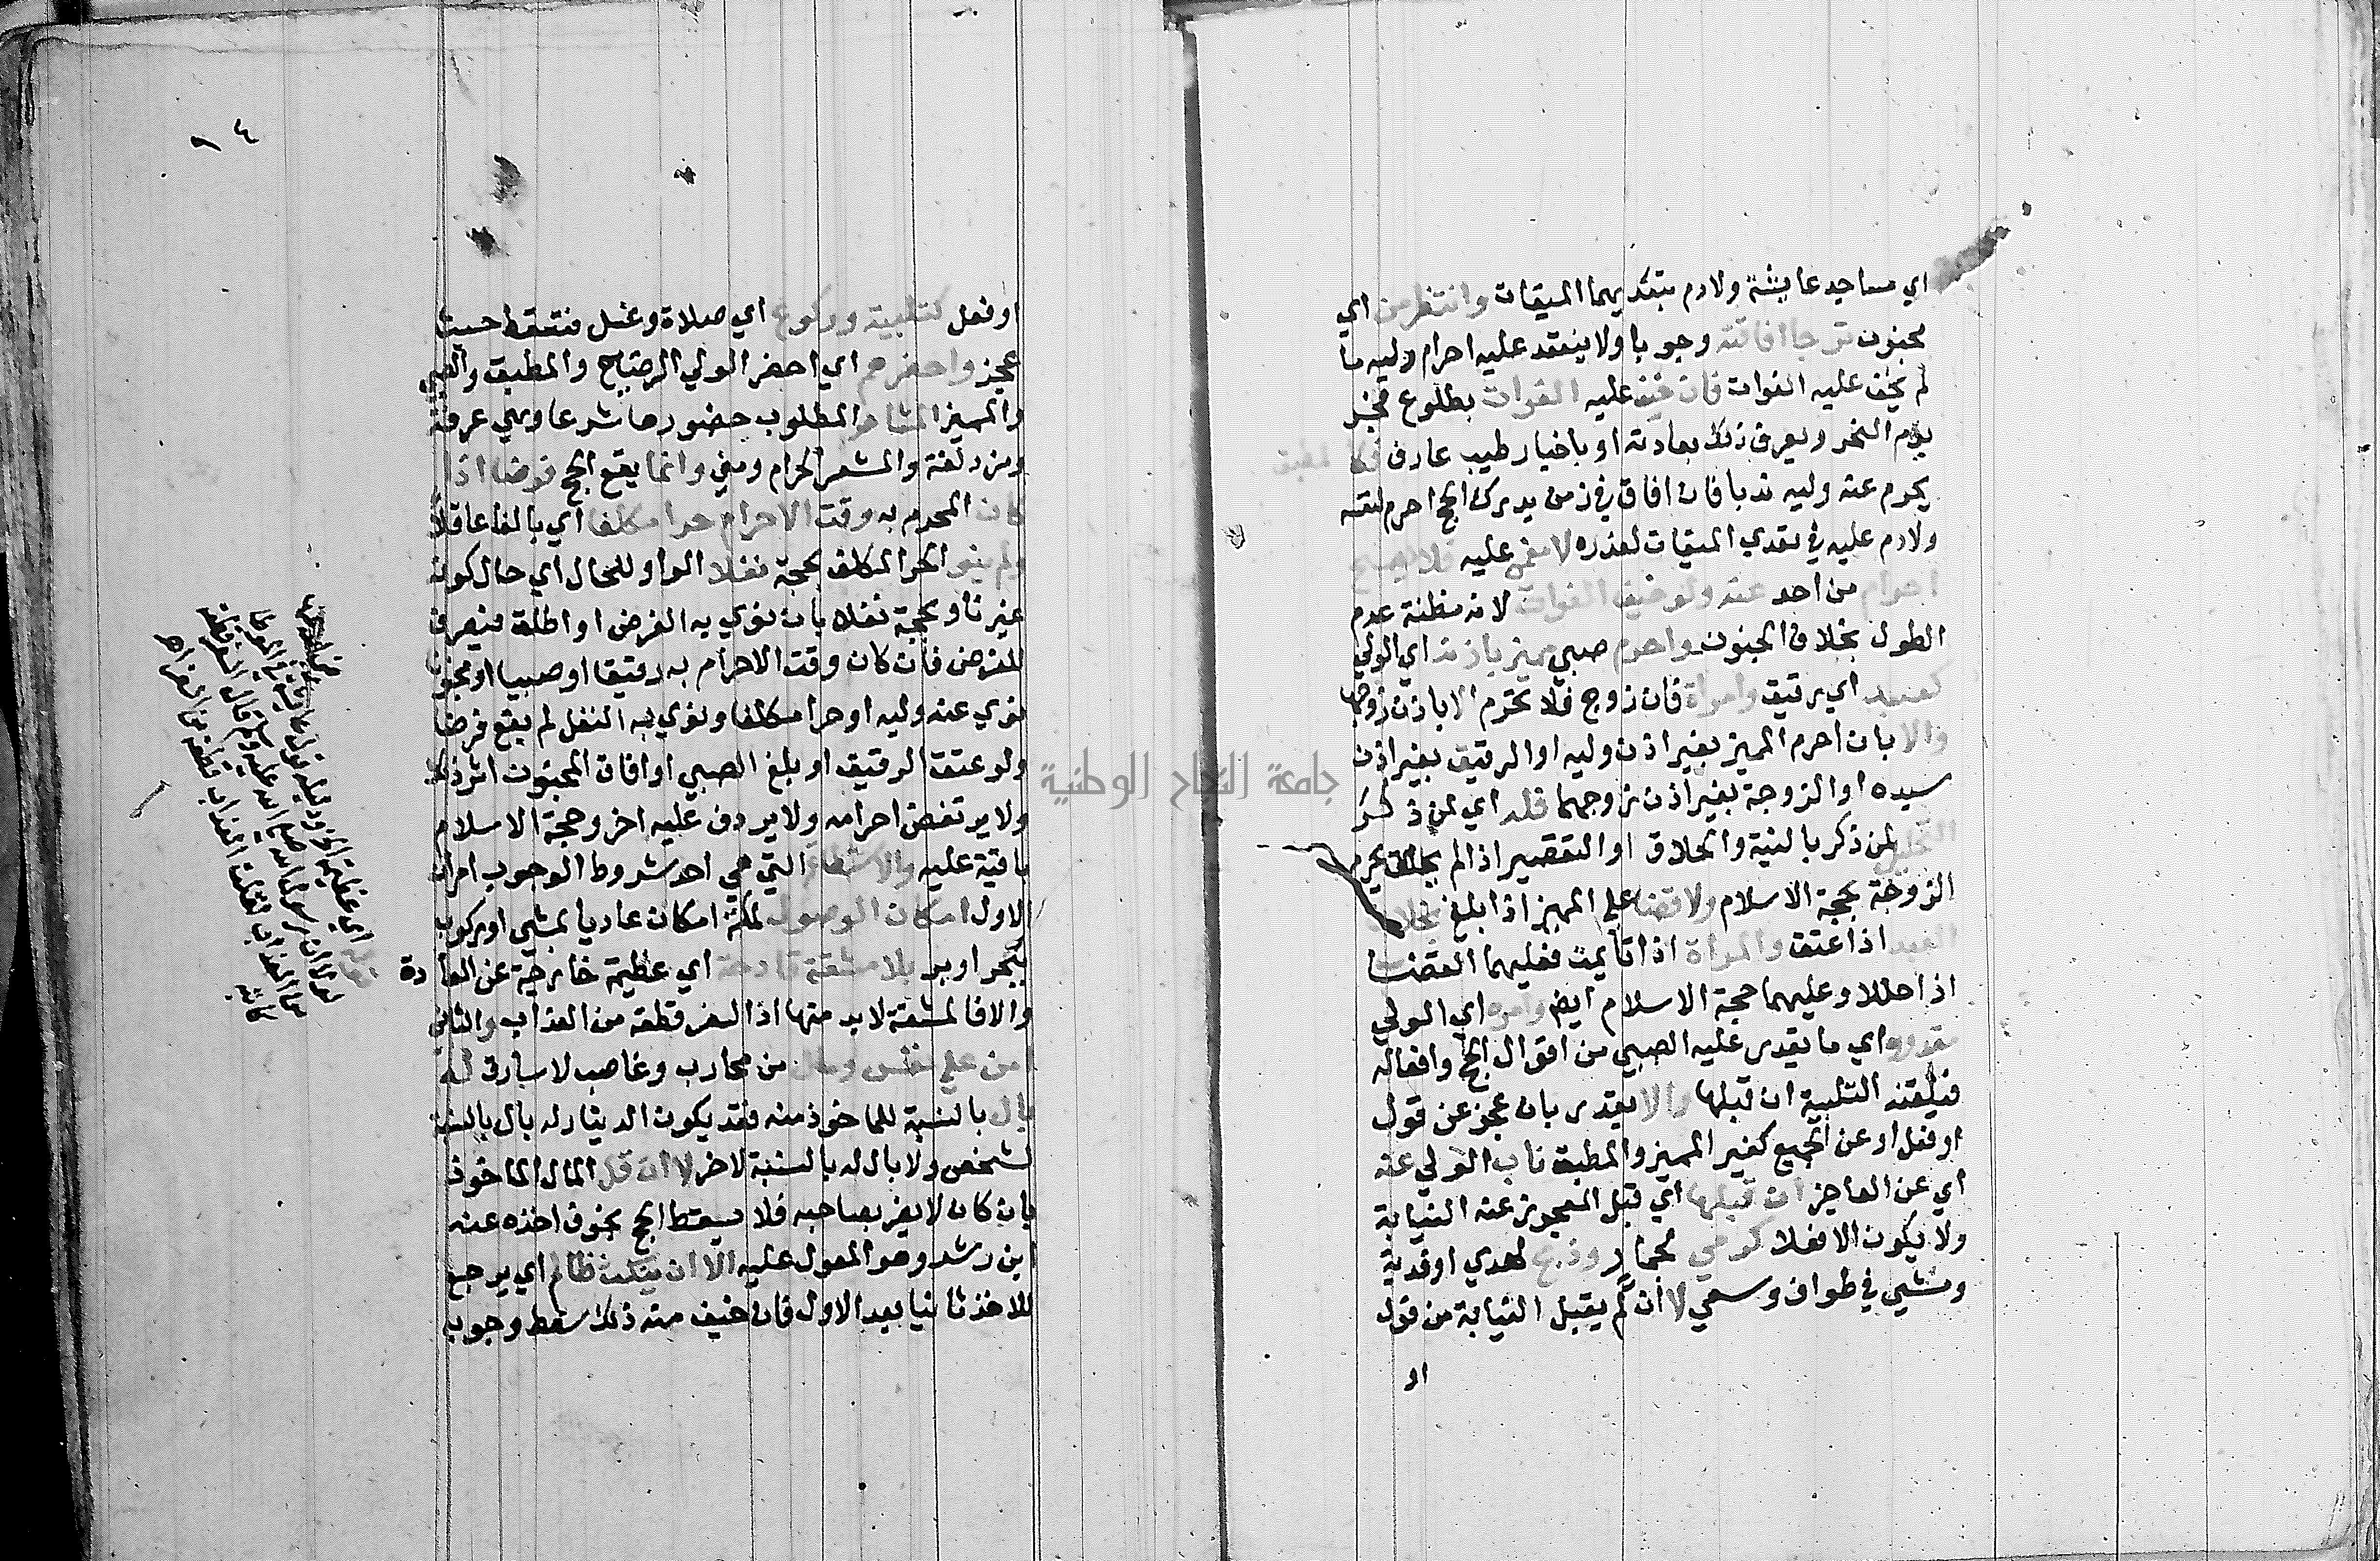 اي مساجد عايشة ولا دم بتعديهما الميقات وانتظر من اي
مجنون ترجا افاقته وجوبا ولا ينعقد عليه احرام وليه ما
لم يخف عليه الفوات فان خيف عليه الفوات بطلوع فجر
يوم النحر ويعرف ذلك بعادته او باخبار طبيب عارف فكالمطبق
يحرم عنه وليه ندبا فان افاق في زمن يدرك الحج احرم لنفسه
ولا دم عليه في تعدي الميقات لعذره لا مغمي عليه فلا يصح
احرام من احد عنه ولو خيف الفوات لانه مظنة عدم
الطول بخلاف الجنون واحرم صبي مميز باذنه اي الولي
كعبد اي رقيق وامراة فان زوج فلا تحرم الا باذن زوجها
والا بان احرم المميز بغير اذن وليه او الرقيق بغير اذن
سيده او الزوجة بغير اذن زوجها فله اي لمن ذكر
التحليل لمن ذكر بالنية والحلاق او التقصير اذا لم تحرم
الزوجة بحجة الاسلام ولا قضا علي المميز اذا بلغ بخلاف
العبد اذا عتق والمراة اذا تايمت فعليهما القضا
اذا حللا وعليهما حجة الاسلام ايض وامره اي الولي
مقدوره اي ما يقدر عليه الصبي من اقوال الحج وافعاله
فيلقنه التلبية ان قبلها والا يقدر بان عجز عن قول
او فعل او عن الجميع كغير المميز والمطبق ناب الولي عنه
اي عن العاجز ان قبلها اي قبل المعجوز عنه النيابة
ولا يكون الا فعلا كرمي لجمار وذبح لهدي او فدية
ومشي في طواف وسعي لا ان لم يقبل النيابة من قول
او
١٤
او فعل كتلبية وركوع اي صلاة وغسل فتسقط حيث
عجز واحضرهم اي احضر الولي الرضيع والمطبق والصبي
والمميز المشاهد المطلوب حضورها شرعا وهي عرفة
ومزدلفة والمشعر الحرام ومني وانما يقع الحج فرضا اذا
كان المحرم به وقت الاحرام حرا مكلفا اي بالغا عاقلا
ولم ينو الحر المكلف بحجه نفلا الواو للحال اي حال كونه
غير ناو بحجة نفلا بان نوي به الفرض او اطلق فينصرف
للفرض فان كان وقت الاحرام به رقيقا او صبيا او مجنونا
نوي عنه وليه او حرا مكلفا ونوي به النفل لم يقع فرضا
ولو عتق الرقيق او بلغ الصبي او افاق المجنون اثر ذلك
ولا يرتفض احرامه ولا يردف عليه اخر وحجة الاسلام
باقية عليه والاستطاعة التي هي احد شروط الوجوب امران
الاول امكان الوصول لمكة امكانا عاديا بمشي او ركوب
ببحر او بر بلا مشقة فادحة اي عظيمة خارجة عن العادة
والا فالمشقة لا بد منها اذ السفر قطعة من العذاب والثاني
امن علي نفس ومال من محارب وغاصب لا سارق له
بال بالنسبة للماخوذ منه فقد يكون الدينار له بال بالنسبة
لشخص ولا بال له بالنسبة لاخر لا ان قل المال الماخوذ
بان كان لا يضر بصاحبه فلا يسقط الحج بخوف اخذه عند
ابن رشد وهو المعول عليه الا ان ينكث ظالم اي يرجع
للاخذ ثانيا بعد الاول فان خيف منه ذلك سقط وجوب
جامعة النجاح الوطنية